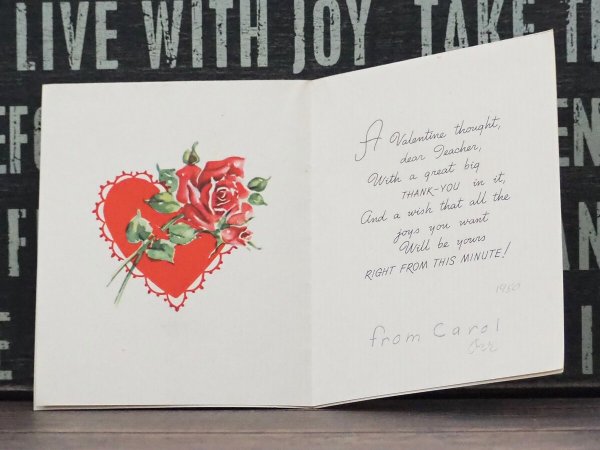 LIVE WITH JOY TAKE
A Valentine thought,
dear Teacher,
With a great big
THANK-YOU in it,
And a wish that all the
joys you want
Will be yours
RIGHT FROM THIS MINUTE!
1950
from Carol